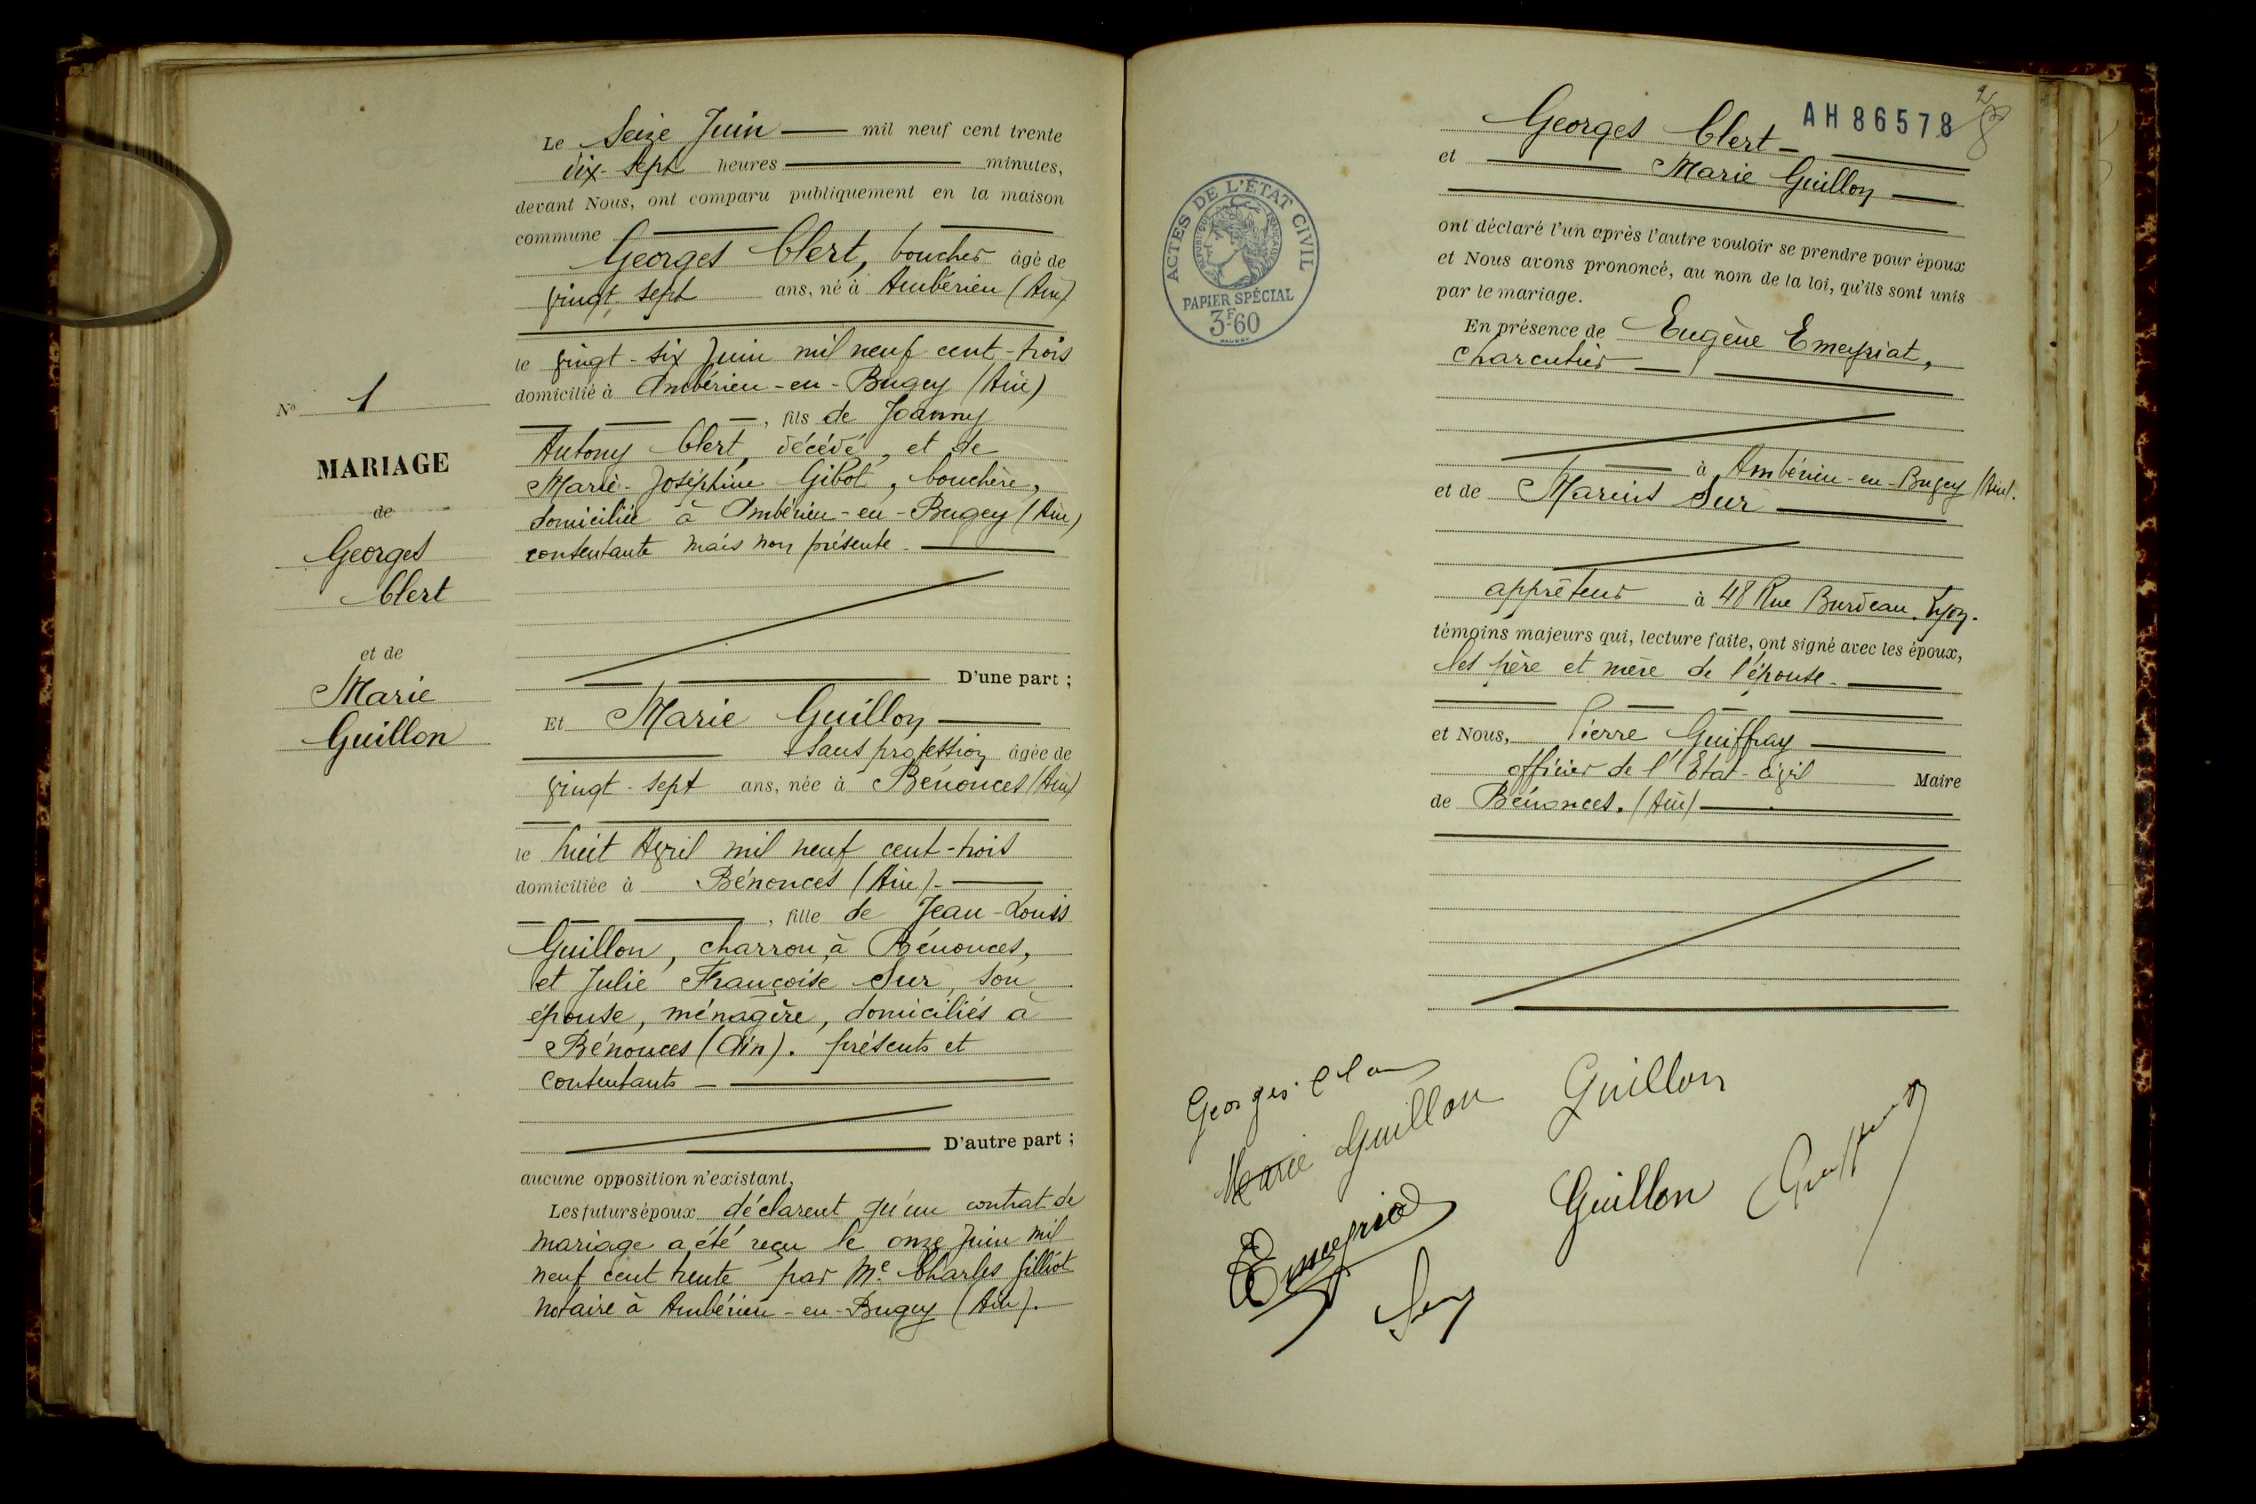 Le Seize Juin mil neuf cent trente
dix-sept heures minutes,
devant Nous, ont comparu publiquement en la maison
commune
Georges Clert, boucher âgé de
vingt-sept ans, né à Ambérieu (Ain)
le vingt-six Juin mil neuf cent-trois
domicilié à Ambérieu-en-Bugey (Ain)
, fils de Joanny
Antony Clert, décédé, et de
Marie-Joséphine Gibot, bouchère,
domiciliée à Ambérieu-en-Bugey (Ain)
consentante mais non présente.
D'une part ;
Et Marie Guillon
sans profession âgée de
vingt-sept ans, née à Bénonces (Ain)
le huit Avril mil neuf cent-trois
domiciliée à Bénonces (Ain).
, fille de Jean-Louis
Guillon, charron à Bénonces,
et Julie Françoise Sur, son
épouse, ménagère, domiciliés à
Bénonces (Ain). présents et
consentants
D'autre part ;
aucune opposition n'existant,
Les futurs époux déclarent qu'un contrat de
mariage a été reçu le onze Juin mil
neuf cent trente par Me Charles Gilliot
notaire à Ambérieu-en-Bugey (Ain).
No 1
MARIAGE
de
Georges
Clert
et de
Marie
Guillon
AH 86578
Georges Clert
et Marie Guillon
ont déclaré l'un après l'autre vouloir se prendre pour époux
et Nous avons prononcé, au nom de la loi, qu'ils sont unis
par le mariage.
En présence de Eugène Emeyriat,
charcutier
à Ambérieu-en-Bugey (Ain).
et de Marius Sur
apprêteur à 48 Rue Burdeau. Lyon.
témoins majeurs qui, lecture faite, ont signé avec les époux,
les père et mère de l'épouse.
et Nous, Pierre Guiffray
officier de l'Etat-civil Maire
de Bénonces. (Ain)
ACTES DE L'ÉTAT CIVIL
RÉPUBLIQUE FRANÇAISE
PAPIER SPÉCIAL
3F60
Georges Clert
Marie Guillon
Guillon
Emeyriat
Guillon
Guiffray
Sur